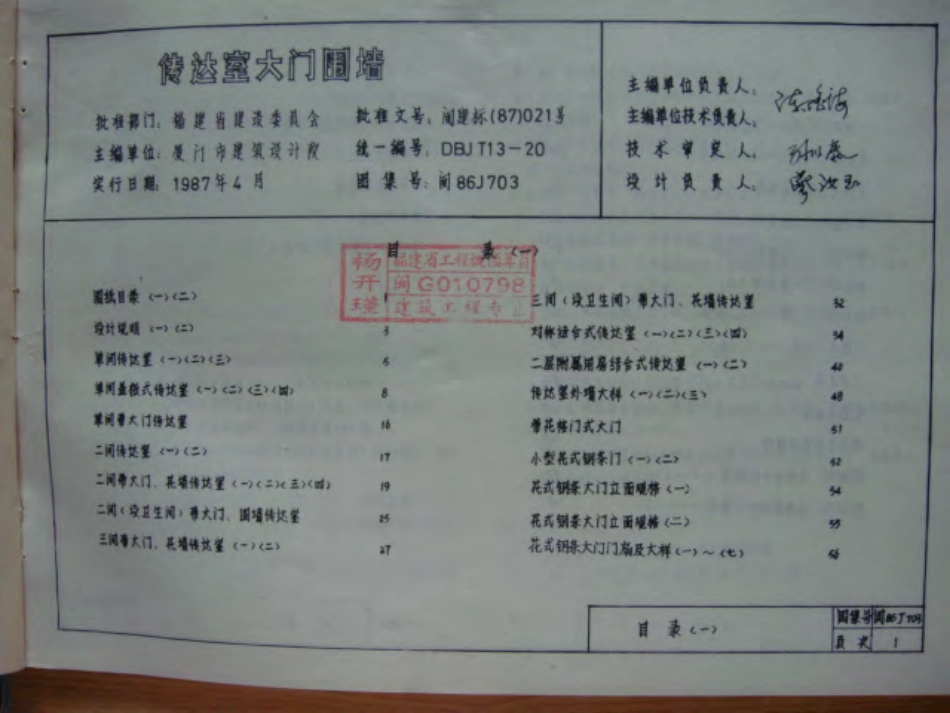 传达室大门围墙
批准部门：福建省建设委员会
主编单位：厦门市建筑设计院
实行日期：1987年4月
批准文号：闽建标(87)021号
统一编号：DBJT13-20
图集号：闽86J703
主编单位负责人：
主编单位技术负责人：
技术审定人：
设计负责人：
目录(一)
杨开瑾
福建省工程
闽G010798
建筑工程专业
图纸目录(一)(二) 1
设计说明(一)(二) 3
单间传达室(一)(二)(三) 5
单间盖板式传达室(一)(二)(三)(四) 8
单间带大门传达室 16
二间传达室(一)(二) 17
二间带大门、花墙传达室(一)(二)(三)(四) 19
二间(设卫生间)带大门、围墙传达室 25
三间带大门、花墙传达室(一)(二) 27
三间(设卫生间)带大门、花墙传达室 32
对称结合式传达室(一)(二)(三)(四) 34
二层附属用房结合式传达室(一)(二) 40
传达室外墙大样(一)(二)(三) 48
带花格门式大门 51
小型花式钢条门(一)(二) 52
花式钢条大门立面规格(一) 54
花式钢条大门立面规格(二) 55
花式钢条大门门扇及大样(一)~(七) 56
目录(一)
图集号 闽86J703
页次 1